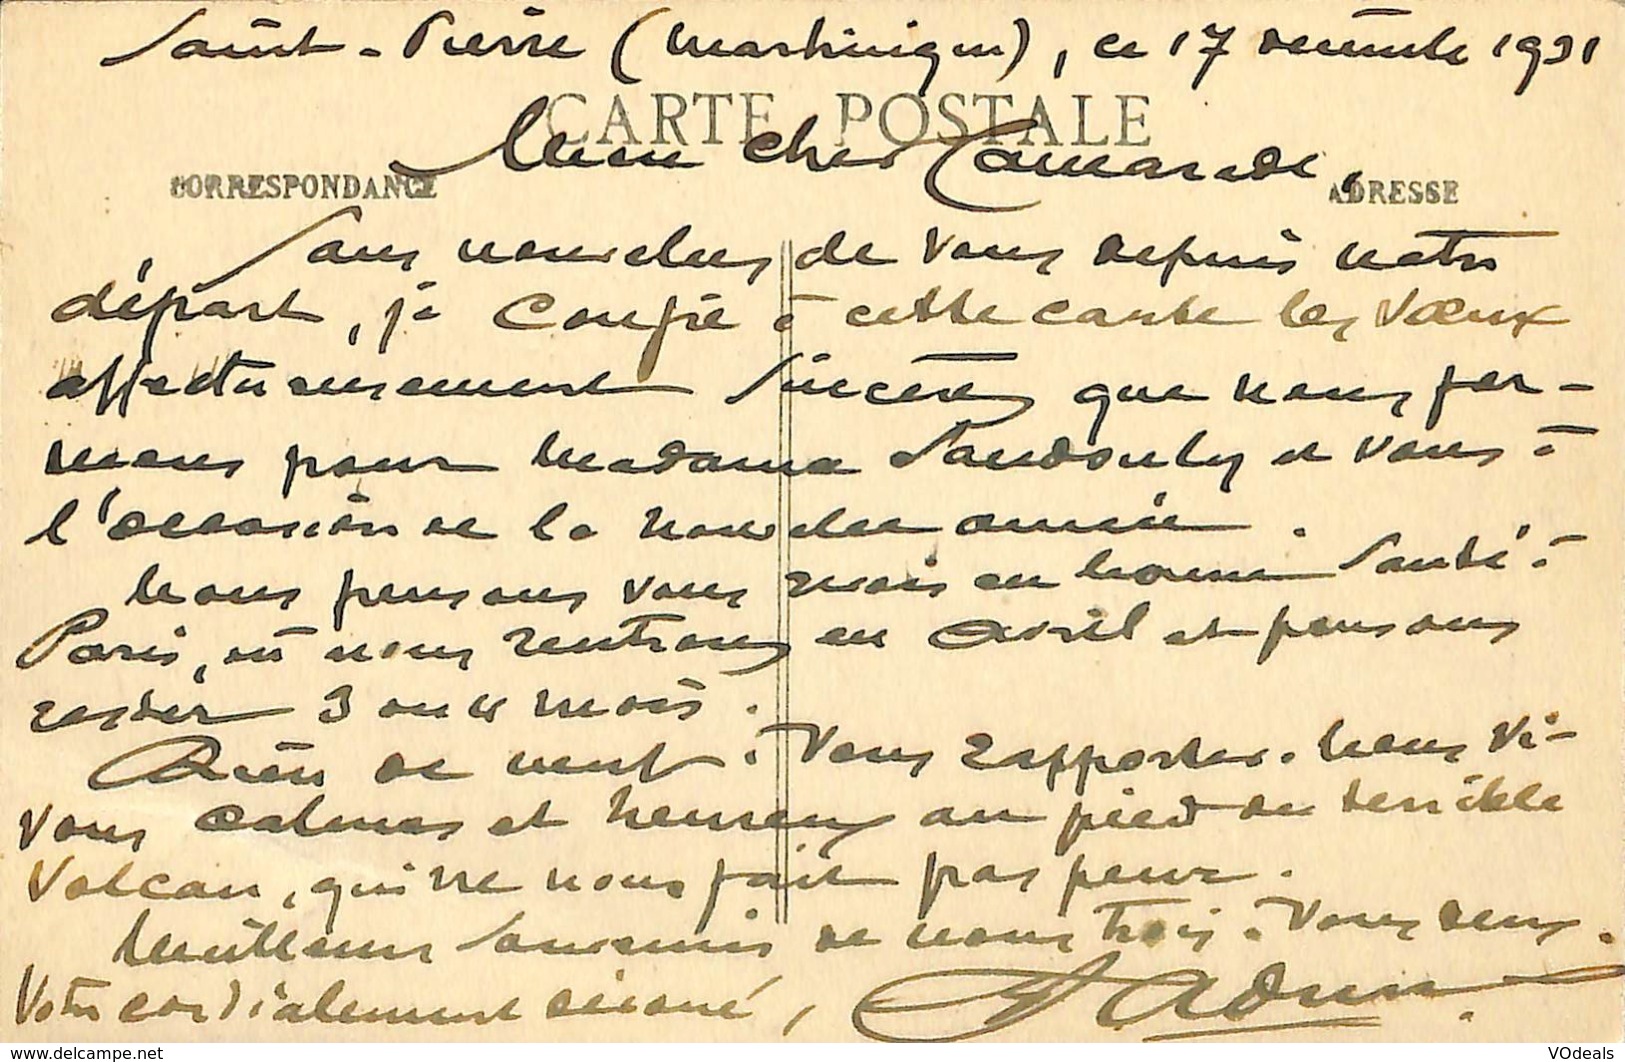 Saint-Pierre (Martinique), ce 17 décembre 1931
CARTE POSTALE
Mon cher Camarade,
CORRESPONDANCE
ADRESSE
Sans nouvelles de vous depuis notre
départ, je confie à cette carte les vœux
affectueusement sincères que nous for-
mons pour Madame et vous à
l'occasion de la nouvelle année.
Nous pensons vous revoir en bonne santé à
Paris, où nous rentrons en Avril et pensons
rester 3 ou 4 mois.
Rien de neuf à vous rapporter. Nous vi-
vons calmes et heureux au pied du terrible
Volcan, qui ne nous fait pas peur.
Meilleurs souvenirs de nous trois à vous deux.
Votre cordialement dévoué,
www.delcampe.net
VOdeals